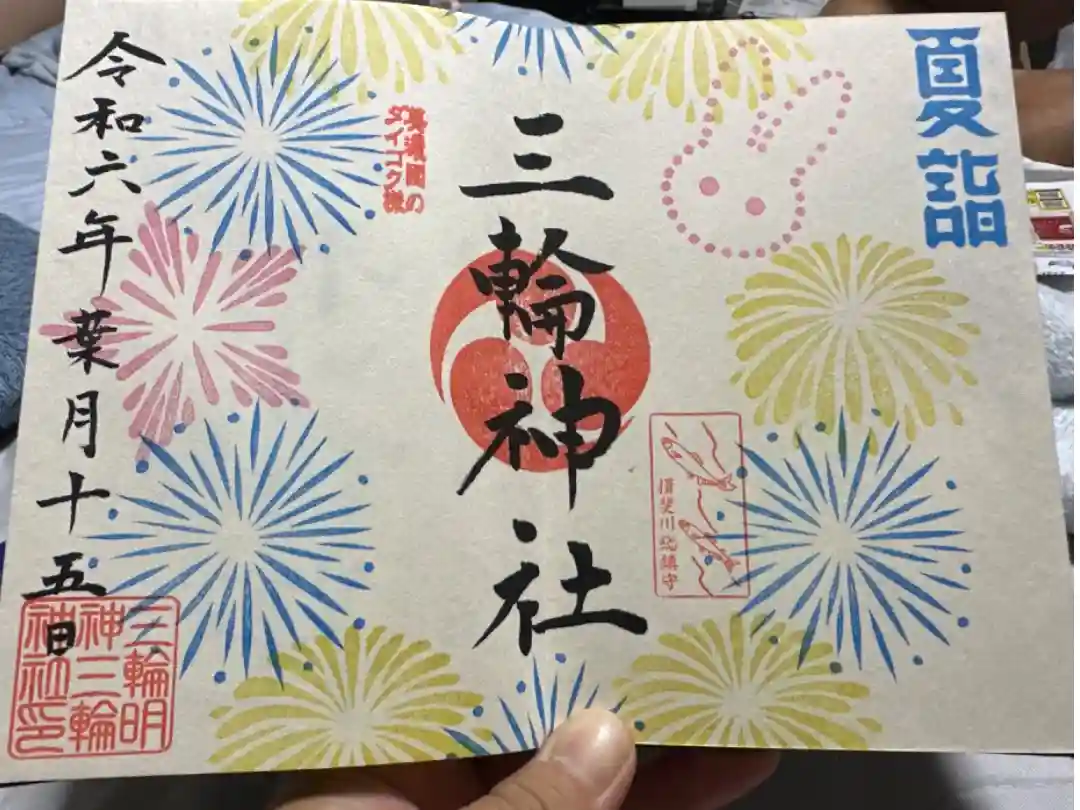 夏詣
揖斐川総鎮守
三輪神社
美濃國の
ダイコク様
令和六年葉月十五日
三輪明
神三輪
神社印